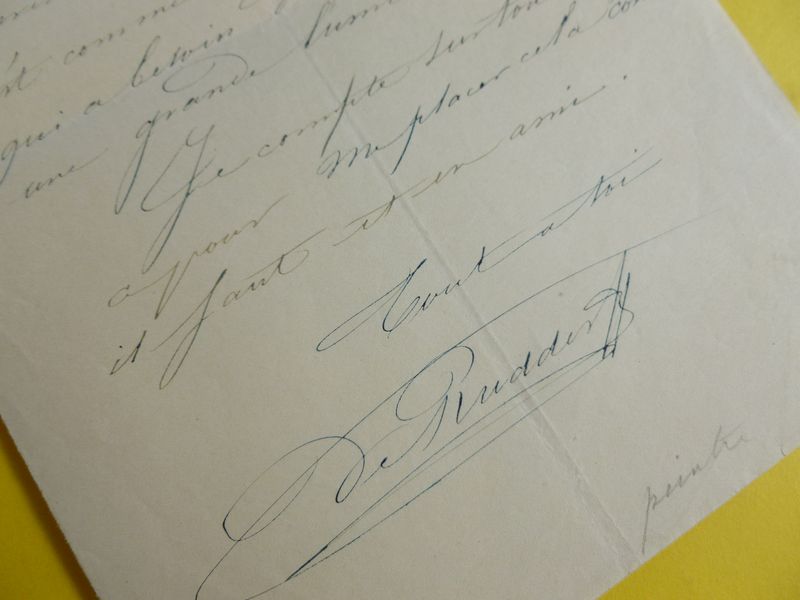 nt comme
qui a besoin
une grande lumi
Je compte surtou
a pour me placer cela com
il faut et en ami.
Tout a toi
De Rudder
peintre